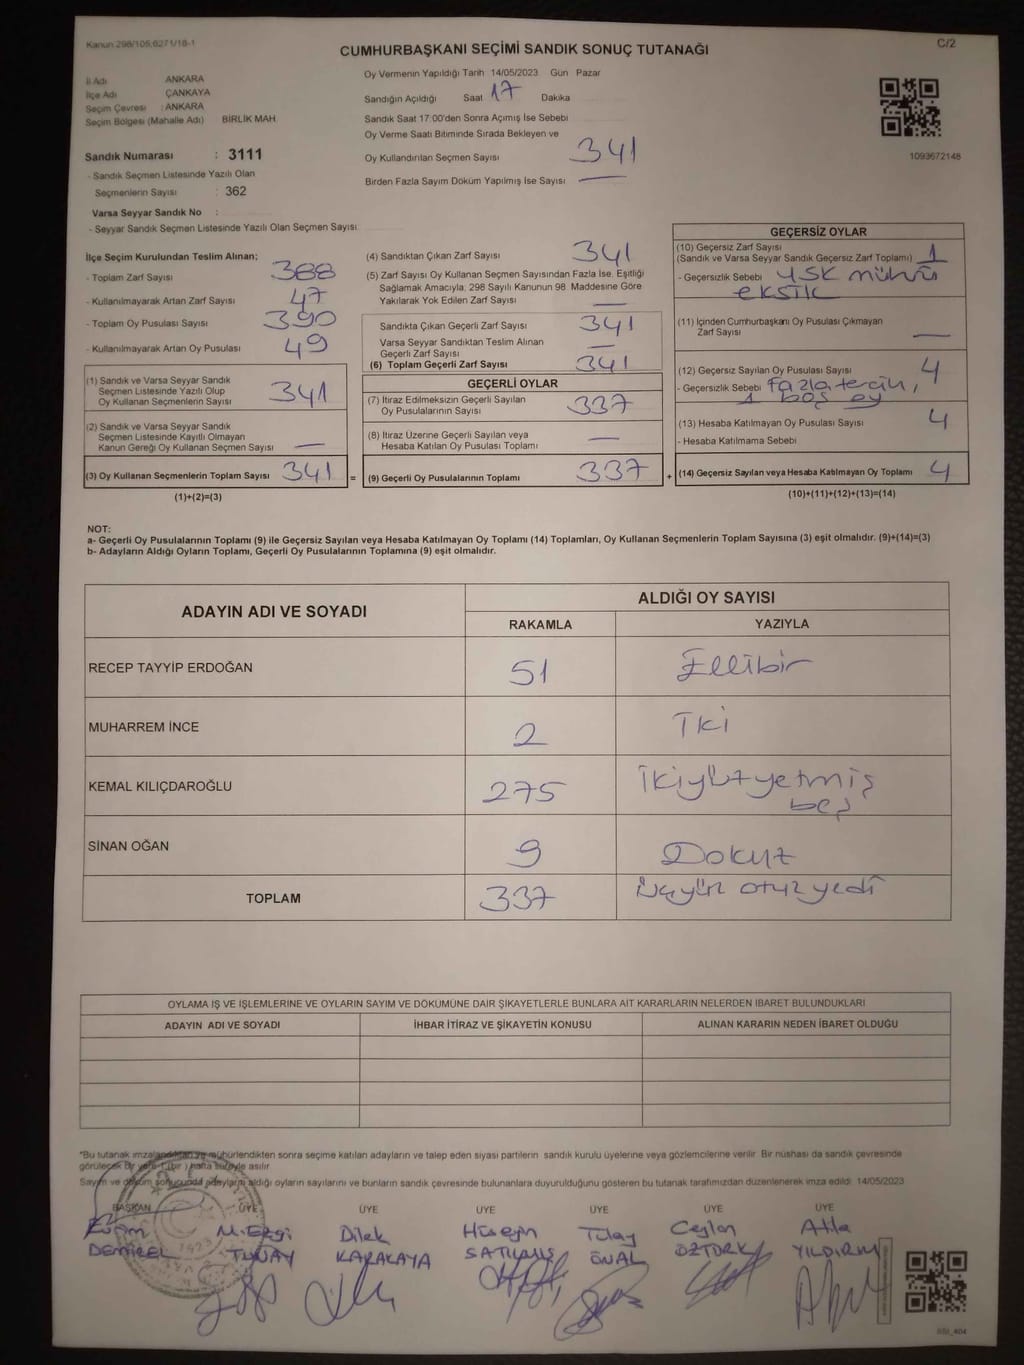 Kanun 298/105,6271/18-1
C/2
CUMHURBAŞKANI SEÇİMİ SANDIK SONUÇ TUTANAĞI
İl Adı ANKARA
İlçe Adı ÇANKAYA
Seçim Çevresi : ANKARA
Seçim Bölgesi (Mahalle Adı) BİRLİK MAH.
Sandık Numarası : 3111
- Sandık Seçmen Listesinde Yazılı Olan
Seçmenlerin Sayısı : 362
Varsa Seyyar Sandık No :
- Seyyar Sandık Seçmen Listesinde Yazılı Olan Seçmen Sayısı
Oy Vermenin Yapıldığı Tarih 14/05/2023 Gün Pazar
Sandığın Açıldığı Saat 17 Dakika
Sandık Saat 17:00'den Sonra Açımış İse Sebebi
Oy Verme Saati Bitiminde Sırada Bekleyen ve
Oy Kullandırılan Seçmen Sayısı 341
Birden Fazla Sayım Döküm Yapılmış İse Sayısı —
1093672148
İlçe Seçim Kurulundan Teslim Alınan;
- Toplam Zarf Sayısı 388
- Kullanılmayarak Artan Zarf Sayısı 47
- Toplam Oy Pusulası Sayısı 390
- Kullanılmayarak Artan Oy Pusulası 49
(1) Sandık ve Varsa Seyyar Sandık
Seçmen Listesinde Yazılı Olup
Oy Kullanan Seçmenlerin Sayısı 341
(2) Sandık ve Varsa Seyyar Sandık
Seçmen Listesinde Kayıtlı Olmayan
Kanun Gereği Oy Kullanan Seçmen Sayısı —
(3) Oy Kullanan Seçmenlerin Toplam Sayısı 341 =
(1)+(2)=(3)
(4) Sandıktan Çıkan Zarf Sayısı 341
(5) Zarf Sayısı Oy Kullanan Seçmen Sayısından Fazla İse, Eşitliği
Sağlamak Amacıyla, 298 Sayılı Kanunun 98 Maddesine Göre
Yakılarak Yok Edilen Zarf Sayısı —
Sandıkta Çıkan Geçerli Zarf Sayısı 341
Varsa Seyyar Sandıktan Teslim Alınan
Geçerli Zarf Sayısı —
(6) Toplam Geçerli Zarf Sayısı 341
GEÇERLİ OYLAR
(7) İtiraz Edilmeksizin Geçerli Sayılan
Oy Pusulalarının Sayısı 337
(8) İtiraz Üzerine Geçerli Sayılan veya
Hesaba Katılan Oy Pusulası Toplamı —
(9) Geçerli Oy Pusulalarının Toplamı 337 +
GEÇERSİZ OYLAR
(10) Geçersiz Zarf Sayısı
(Sandık ve Varsa Seyyar Sandık Geçersiz Zarf Toplamı) 1
- Geçersizlik Sebebi YSK mührü
eksik
(11) İçinden Cumhurbaşkanı Oy Pusulası Çıkmayan
Zarf Sayısı —
(12) Geçersiz Sayılan Oy Pusulası Sayısı 4
- Geçersizlik Sebebi fazla tercih,
1 boş oy
(13) Hesaba Katılmayan Oy Sayısı 4
- Hesaba Katılmama Sebebi
(14) Geçersiz Sayılan veya Hesaba Katılmayan Oy Toplamı 4
(10)+(11)+(12)+(13)=(14)
NOT:
a- Geçerli Oy Pusulalarının Toplamı (9) ile Geçersiz Sayılan veya Hesaba Katılmayan Oy Toplamı (14) Toplamları, Oy Kullanan Seçmenlerin Toplam Sayısına (3) eşit olmalıdır. (9)+(14)=(3)
b- Adayların Aldığı Oyların Toplamı, Geçerli Oy Pusulalarının Toplamına (9) eşit olmalıdır.
ADAYIN ADI VE SOYADI
ALDIĞI OY SAYISI
RAKAMLA YAZIYLA
RECEP TAYYİP ERDOĞAN 51 Ellibir
MUHARREM İNCE 2 İki
KEMAL KILIÇDAROĞLU 275 İkiyüzyetmiş
beş
SİNAN OĞAN 9 Dokuz
TOPLAM 337 Üçyüz otuz yedi
OYLAMA İŞ VE İŞLEMLERİNE VE OYLARIN SAYIM VE DÖKÜMÜNE DAİR ŞİKAYETLERLE BUNLARA AİT KARARLARIN NELERDEN İBARET BULUNDUKLARI
ADAYIN ADI VE SOYADI İHBAR İTİRAZ VE ŞİKAYETİN KONUSU ALINAN KARARIN NEDEN İBARET OLDUĞU
*Bu tutanak imzalandıktan ve mühürlendikten sonra seçime katılan adayların ve talep eden siyasi partilerin sandık kurulu üyelerine veya gözlemcilerine verilir. Bir nüshası da sandık çevresinde
görülecek bir yere 1 (bir) hafta süreyle asılır.
Sayım ve döküm sonucunda adayların aldığı oyların sayılarını ve bunların sandık çevresinde bulunanlara duyurulduğunu gösteren bu tutanak tarafımızdan düzenlenerek imza edildi. 14/05/2023
BAŞKAN ÜYE ÜYE ÜYE ÜYE ÜYE ÜYE
M. Ezgi Dilek Hüseyin Tülay Ceylan Atla
DEMİREL TUNAY KARAKAYA SATILMIŞ ÖNAL ÖZTÜRK YILDIRIM
1923
SSI_404